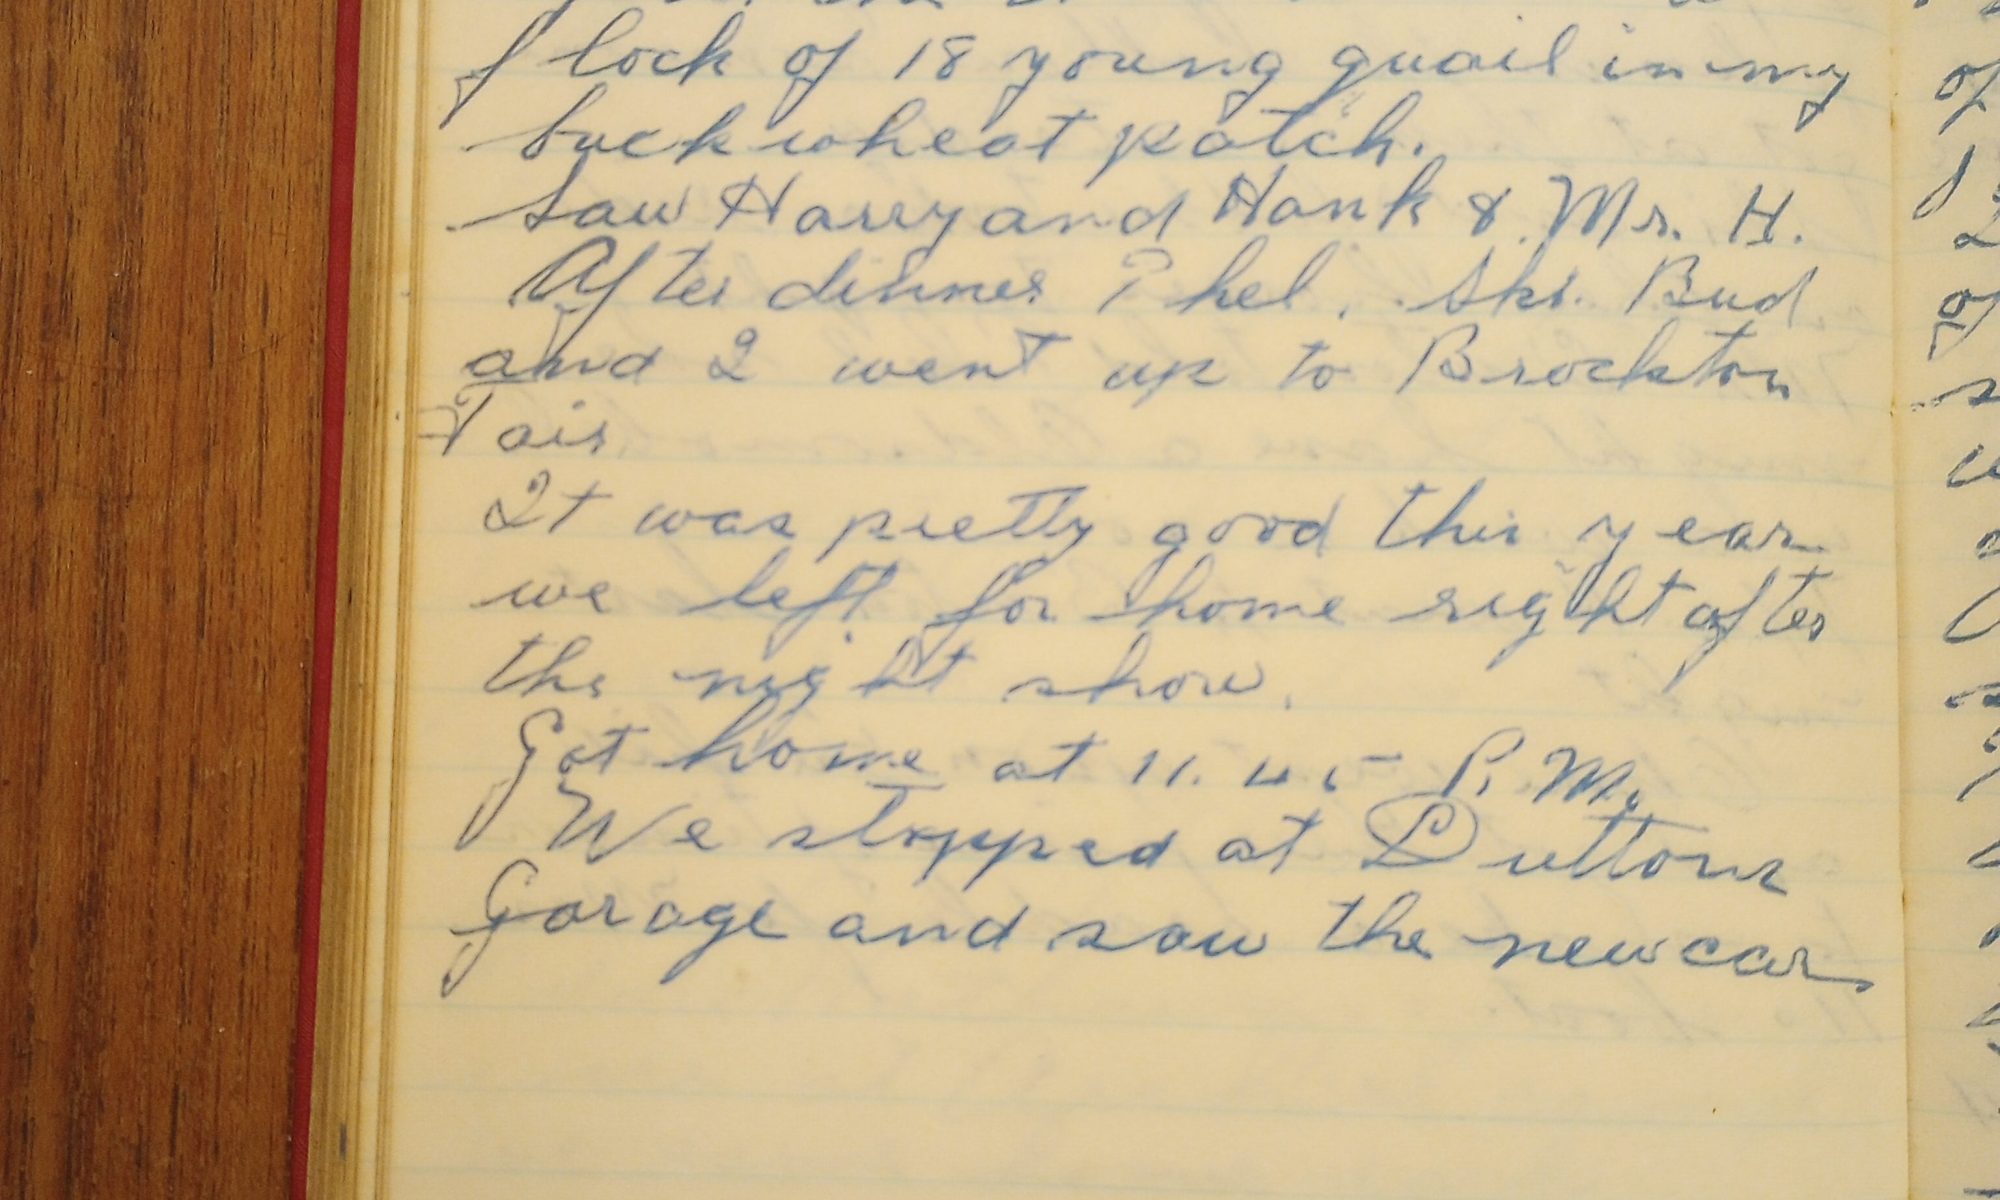 flock of 18 young quail in my
buckwheat patch.
Saw Harry and Hank & Mr. H.
After dinner Phel. Skr. Bud
and I went up to Brockton
Fair
It was pretty good this year
we left for home right after
the night show.
Got home at 11.45 P.M.
We stopped at Duttons
Garage and saw the new car